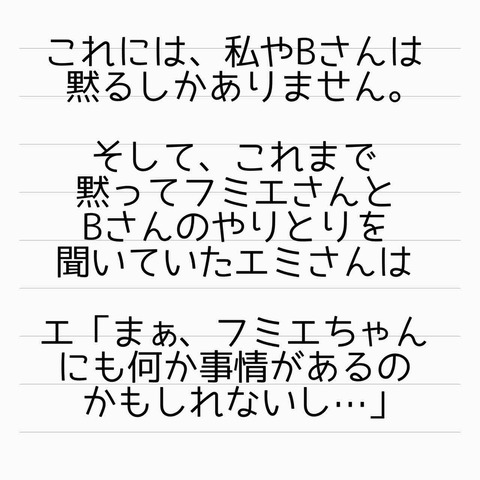 これには、私やBさんは
黙るしかありません。
そして、これまで
黙ってフミエさんと
Bさんのやりとりを
聞いていたエミさんは
エ「まぁ、フミエちゃん
にも何か事情があるの
かもしれないし…」